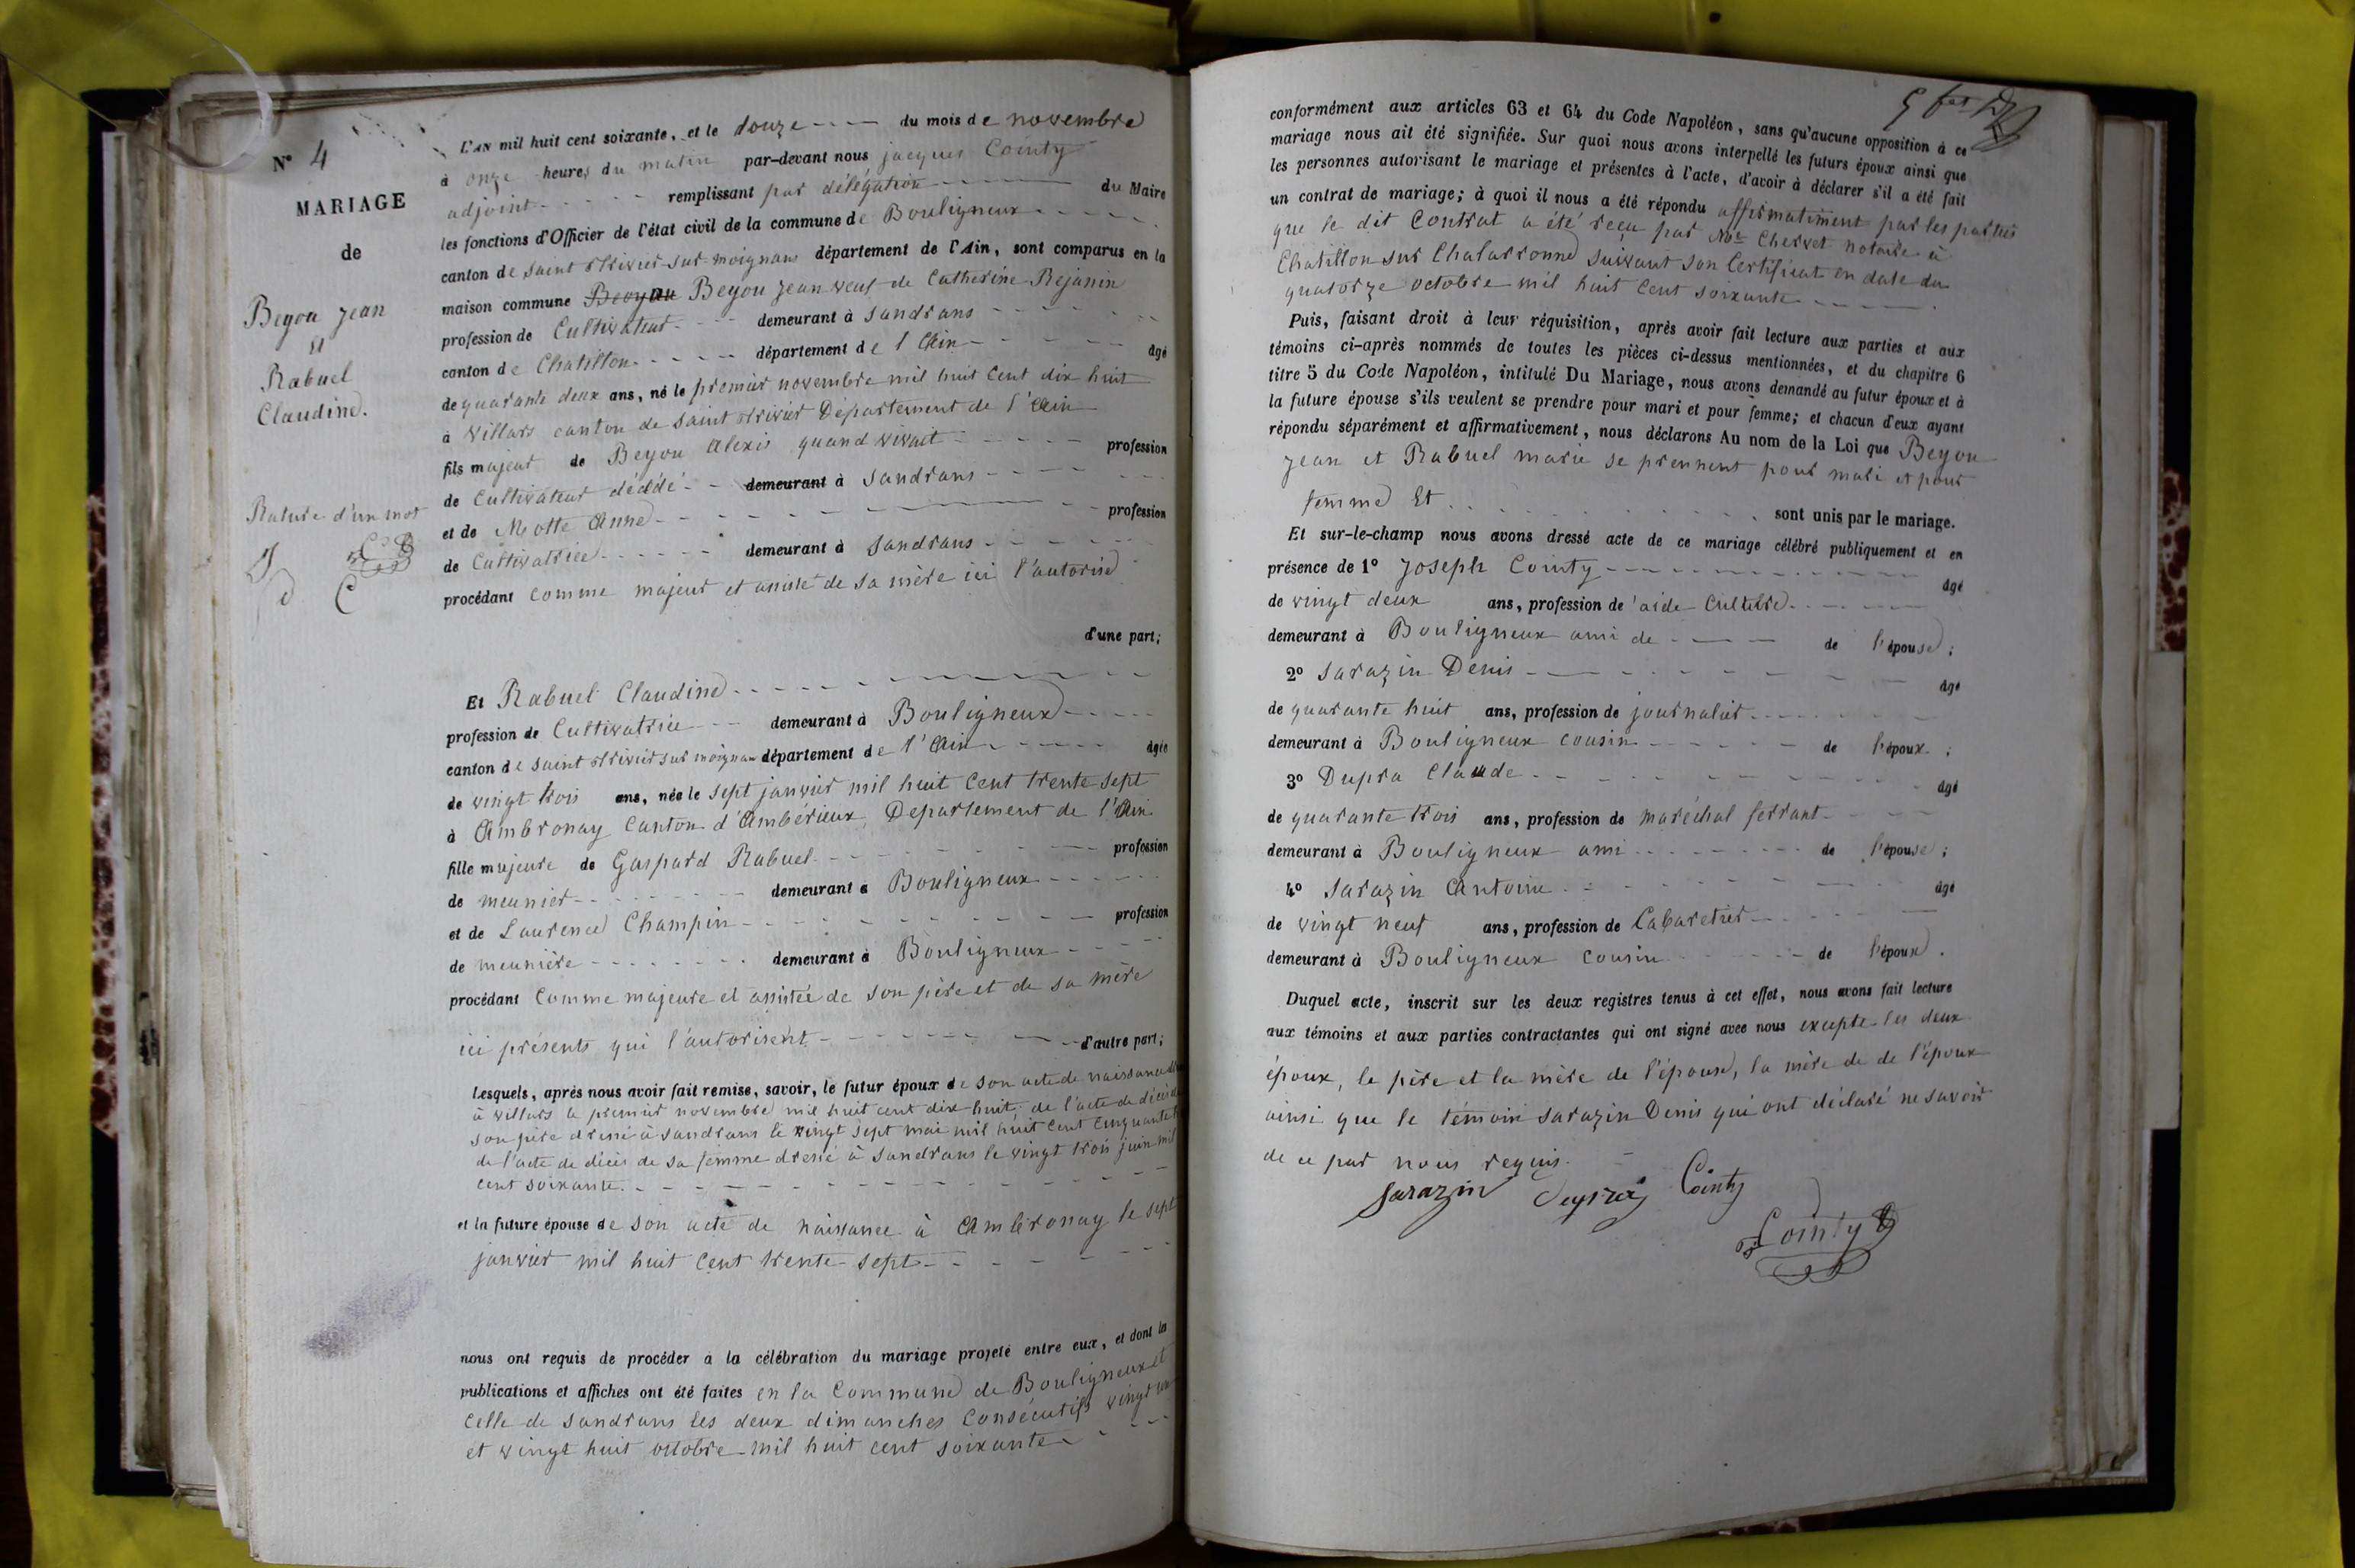 N° 4
MARIAGE
de
Beyou Jean
et
Rabuel
Claudine.
Rature d'un mot
L'AN mil huit cent soixante, et le douze du mois de novembre
à onze heures du matin par-devant nous jacques Cointy
adjoint remplissant par délégation du Maire
les fonctions d'Officier de l'état civil de la commune de Bouligneux
canton de saint trivier sur moignans département de l'Ain, sont comparus en la
maison commune Beyou Jean veuf de Catherine Rejanin
profession de Cultivateur demeurant à Sandrans
canton de Chatillon département de l'Ain âgé
de quarante deux ans, né le premier novembre mil huit cent dix huit
à Villars canton de saint trivier Département de l'Ain
fils majeur de Beyou Alexis quand vivait profession
de Cultivateur décédé demeurant à Sandrans
et de Motte Anne profession
de Cultivatrice demeurant à Sandrans
procédant comme majeur et assisté de sa mère ici l'autorise
d'une part;
Et Rabuel Claudine
profession de Cultivatrice demeurant à Bouligneux
canton de saint trivier sur moignans département de l'Ain âgée
de vingt trois ans, née le sept janvier mil huit cent trente sept
à Ambronay Canton d'Ambérieux, Departement de l'Ain
fille majeure de Gaspard Rabuel profession
de meunier demeurant à Bouligneux
et de Laurence Champin profession
de meunière demeurant à Bouligneux
procédant comme majeure et assistée de son père et de sa mère
ici présents qui l'autorisent d'autre part;
Lesquels, après nous avoir fait remise, savoir, le futur époux de son acte de naissance
à villars le premier novembre mil huit cent dix huit; de l'acte de décès de
son père dressé à sandrans le vingt sept mai mil huit cent cinquante
de l'acte de décès de sa femme dressé à Sandrans le vingt trois juin mil
cent soixante.
et la future épouse de son acte de naissance à Ambronay le sept
janvier mil huit cent trente sept
nous ont requis de procéder à la célébration du mariage projeté entre eux, et dont les
publications et affiches ont été faites en la Commune de Bouligneux et
celle de sandrans les deux dimanches consécutifs vingt un
et vingt huit octobre mil huit cent soixante
conformément aux articles 63 et 64 du Code Napoléon, sans qu'aucune opposition à ce
mariage nous ait été signifiée. Sur quoi nous avons interpellé les futurs époux ainsi que
les personnes autorisant le mariage et présentes à l'acte, d'avoir à déclarer s'il a été fait
un contrat de mariage; à quoi il nous a été répondu affirmatiment par les parties
que le dit Contrat a été reçu par Me Chervet notaire à
Chatillon sur Chalaronne suivant son Certificat en date du
quatorze octobre mil huit cent soixante
Puis, faisant droit à leur réquisition, après avoir fait lecture aux parties et aux
témoins ci-après nommés de toutes les pièces ci-dessus mentionnées, et du chapitre 6
titre 5 du Code Napoléon, intitulé Du Mariage, nous avons demandé au futur époux et à
la future épouse s'ils veulent se prendre pour mari et pour femme; et chacun d'eux ayant
répondu séparément et affirmativement, nous déclarons Au nom de la Loi que Beyou
Jean et Rabuel marie se prennent pour mari et pour
femme Et sont unis par le mariage.
Et sur-le-champ nous avons dressé acte de ce mariage célébré publiquement et en
présence de 1° Joseph Cointy âgé
de vingt deux ans, profession de aide Culture
demeurant à Bouligneux ami de de l'épouse;
2° Sarazin Denis âgé
de quarante huit ans, profession de journalier
demeurant à Bouligneux cousin de l'époux;
3° Dupra Claude âgé
de quarante trois ans, profession de maréchal ferrant
demeurant à Bouligneux ami de l'épouse;
4° Sarazin Antoine âgé
de vingt neuf ans, profession de Cabaretier
demeurant à Bouligneux cousin de l'époux.
Duquel acte, inscrit sur les deux registres tenus à cet effet, nous avons fait lecture
aux témoins et aux parties contractantes qui ont signé avec nous excepte les deux
époux, le père et la mère de l'épouse, la mère de de l'époux
ainsi que le témoin Sarazin Denis qui ont déclaré ne savoir
de ce par nous requis.
Sarazin Cointy
Cointy